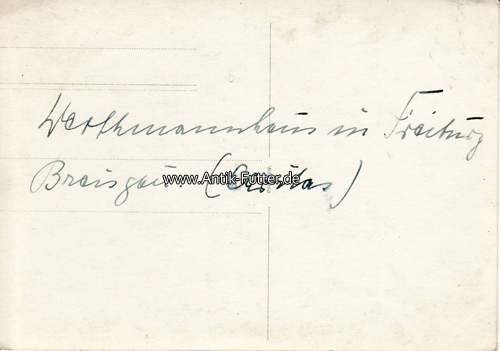 Werthmannhaus in Freiburg
Breisgau (Caritas)
www.Antik-Futter.de